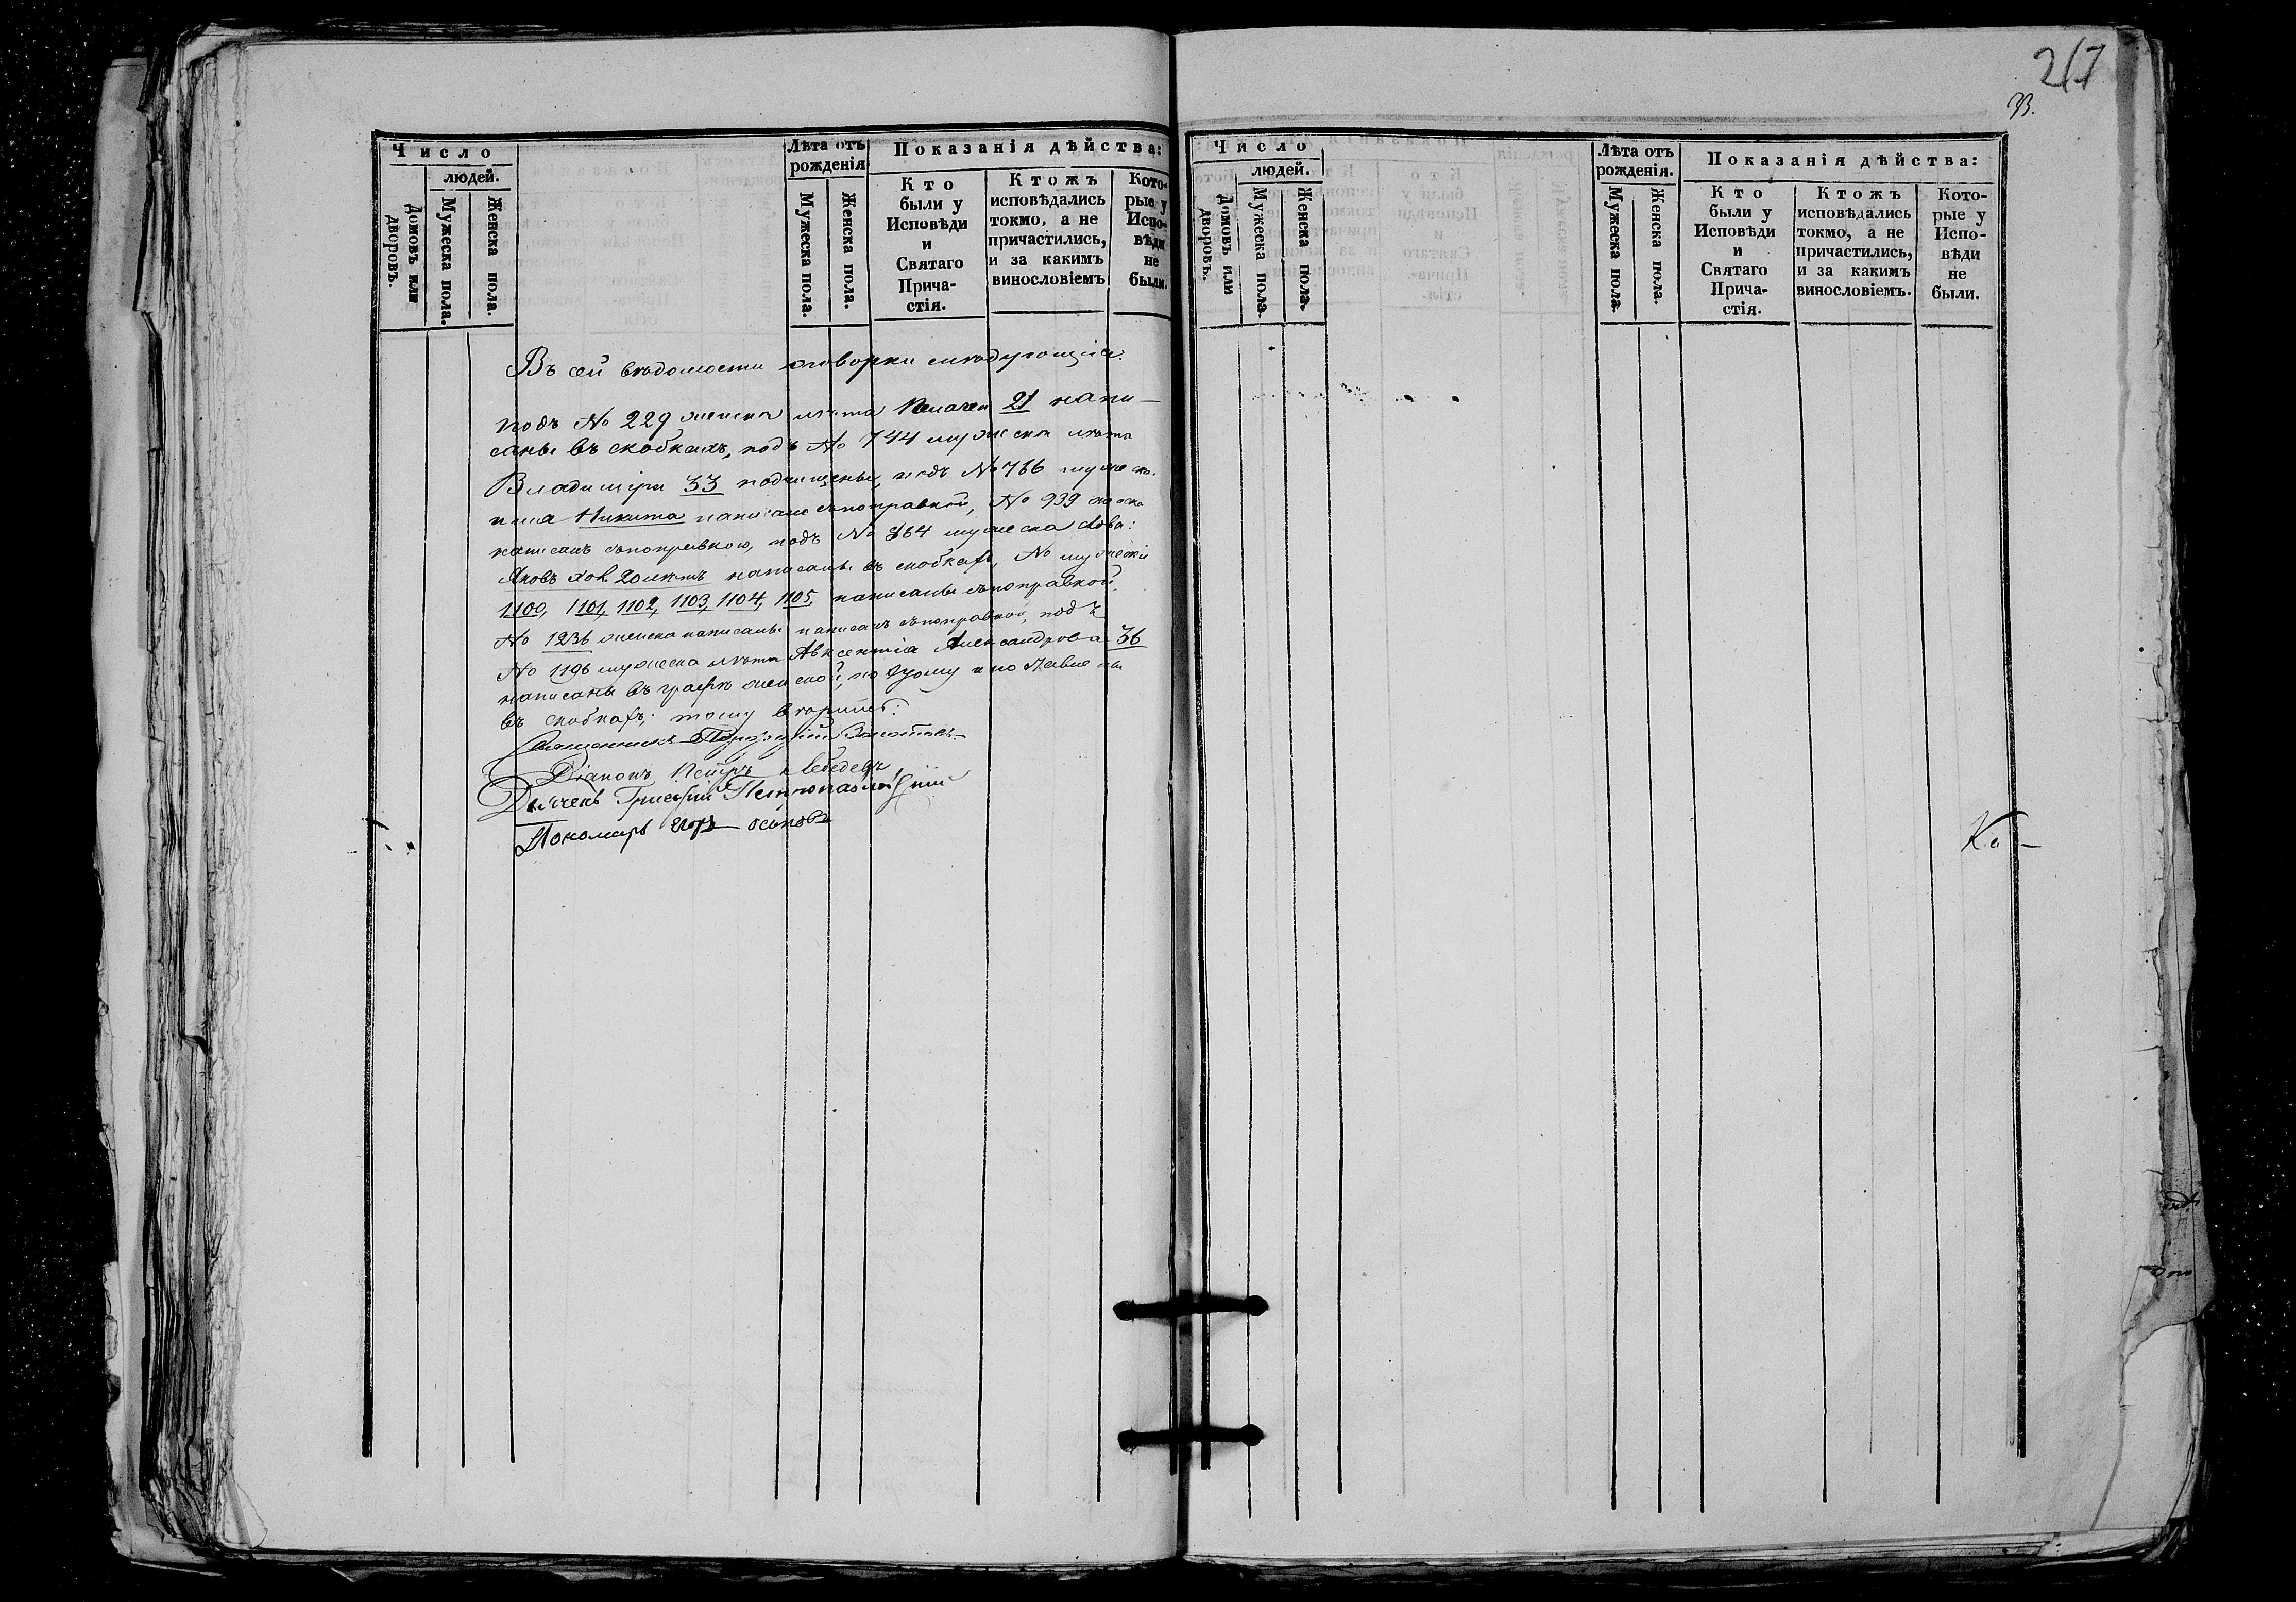 Число
людей.
Домовъ или дворовъ.
Мужеска пола.
Женска пола.
Лѣта отъ рожденія
Мужеска пола.
Женска пола.
Показанія дѣйства:
Кто были у Исповѣди и Святаго Прича-стія.
Ктожъ исповѣдались токмо, а не причастились, и за какимъ винословіемъ
Кото-рые у Испо-вѣди не были.
Въ сей вѣдомости оговорки слѣдующія:
подъ № 229 женска лѣта Пелагеи 21 напи-
саны въ скобкахъ, подъ № 744 мужеска лѣта
Владиміра 33 подчищены, подъ № 766 мужеска
Никита написано съ поправкой, № 939 женска
написанъ съ поправкою, подъ № 364 мужеска
Яковъ 20 лѣтъ написаны въ скобкахъ, № мужескіи
1100, 1101, 1102, 1103, 1104, 1105, написаны съ поправкой,
№ 1236 женска написаны написанъ съ поправкой, подъ
№ 1196 мужеска лѣта Авксентія Александрова 36
написаны въ графѣ женской, по сему и поставлены
въ скобкахъ;
Священникъ Золотовъ
Діаконъ Петръ Лебедевъ
Дьячекъ Григорій Петропавловскій
Пономарь Осиповъ
217
33.
Число
людей.
Домовъ или дворовъ.
Мужеска пола.
Женска пола.
Лѣта отъ рожденія.
Мужеска пола.
Женска пола.
Показанія дѣйства:
Кто были у Исповѣди и Святаго Прича-стія.
Ктожъ исповѣдались токмо, а не причастились, и за какимъ винословіемъ.
Кото-рые у Испо-вѣди не были.